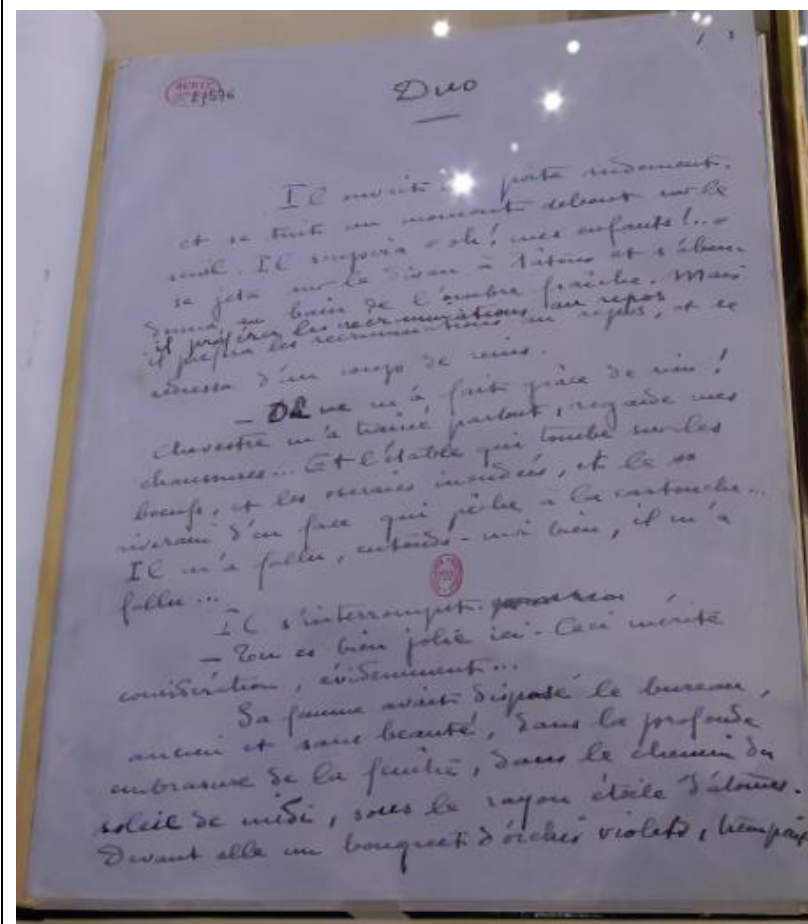 Duo
Il ouvrit la porte rudement,
et se tint un moment debout sur le
seuil. Il soupira « oh ! mes enfants !.. »
se jeta sur le divan à tâtons et s'aban-
donna au bain de l'ombre fraîche. Mais
il préféra les récriminations au repos
il préféra les récriminations au repos, et se
redressa d'un coup de reins.
— On ne m'a fait grâce de rien !
Chevestre m'a traîné partout, regarde mes
chaussures... Et l'étable qui tombe sur les
boeufs, et les oseraies inondées, et le
riverain d'en face qui pêche à la cartouche...
Il m'a fallu, entends-moi bien, il m'a
fallu...
Il s'interrompit.
— Tu es bien jolie ici. Ceci mérite
considération, évidemment...
Sa femme avait disposé le bureau,
ancien et sans beauté, dans la profonde
embrasure de la fenêtre, dans le chemin du
soleil de midi, sous le rayon étoilé d'atomes.
Devant elle un bouquet d'orchis violets, trempait